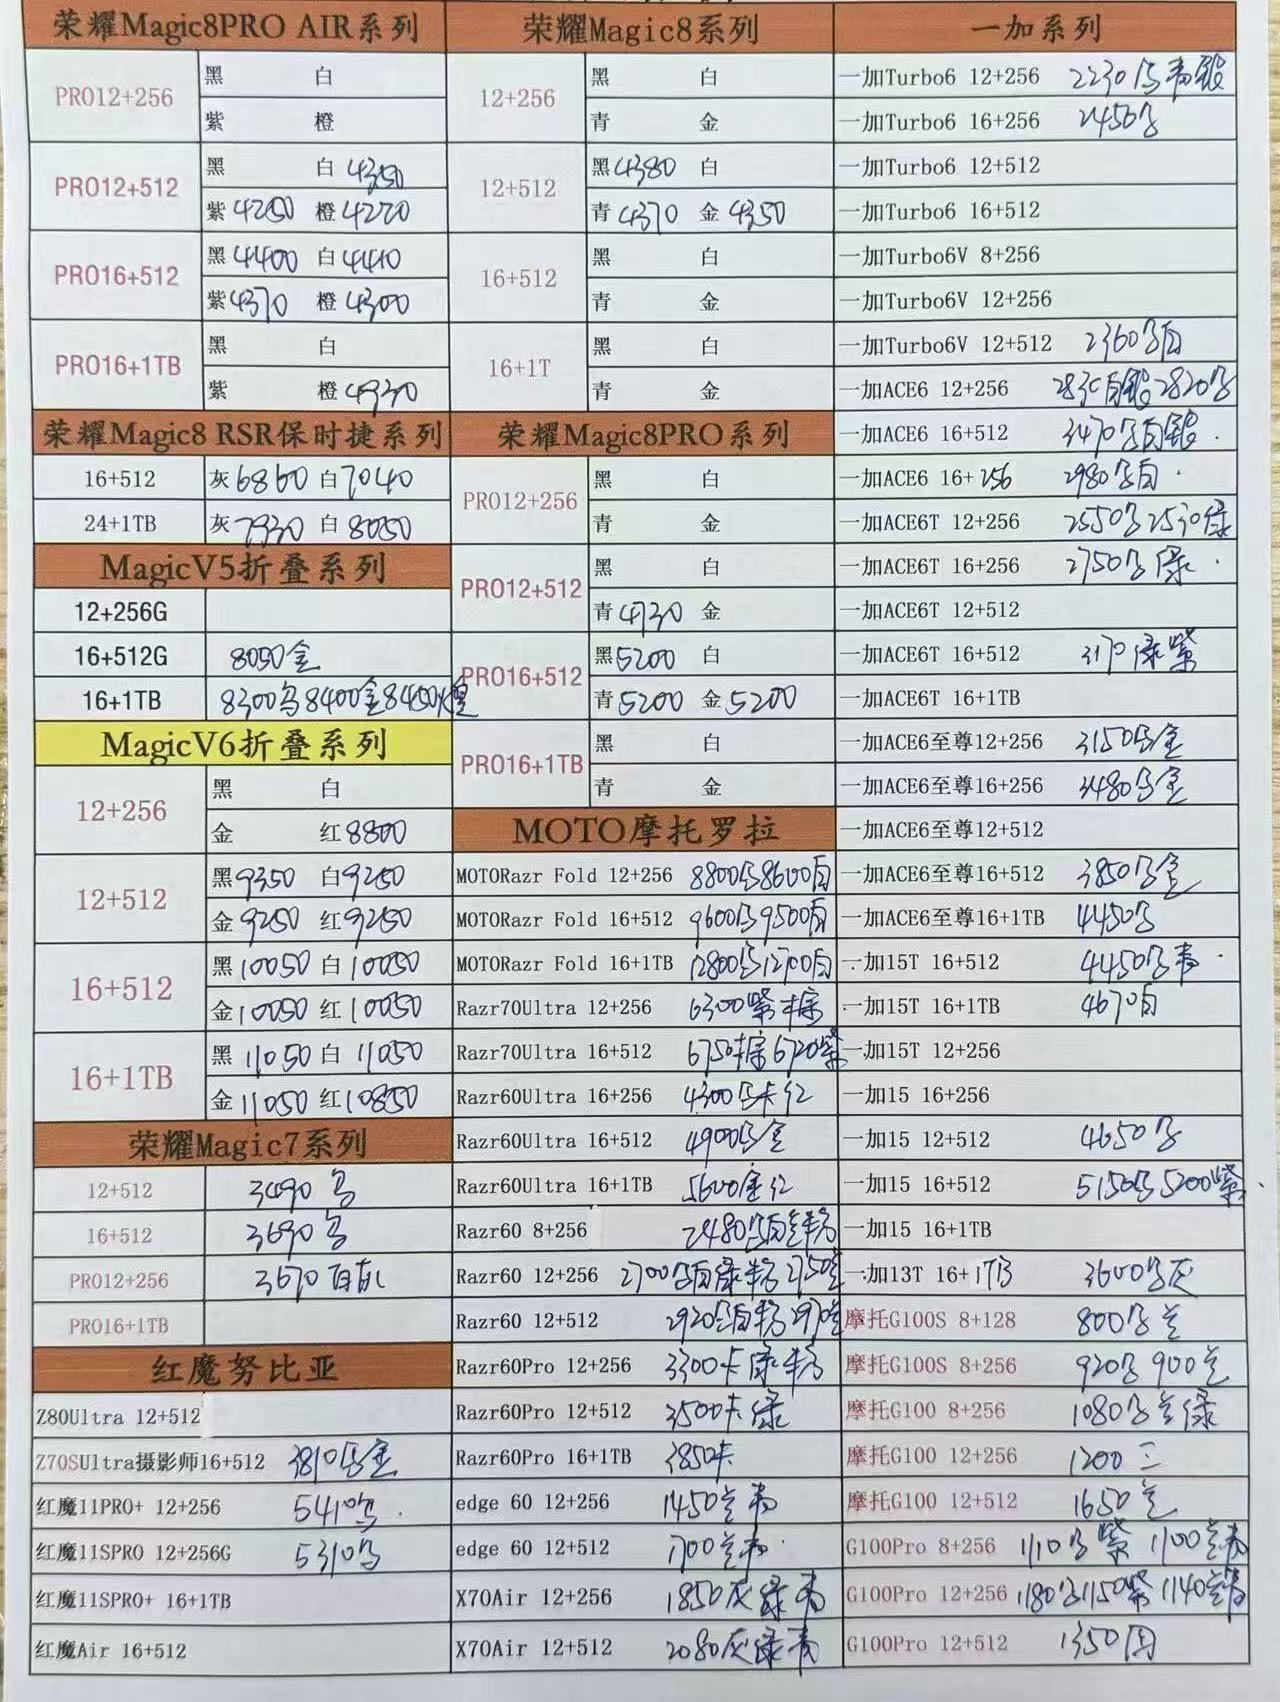 荣耀Magic8PRO AIR系列
PRO12+256
黑 白
紫 橙
PRO12+512
黑 白4350
紫4200 橙4220
PRO16+512
黑4400 白4410
紫4370 橙4300
PRO16+1TB
黑 白
紫 橙4930
荣耀Magic8 RSR保时捷系列
16+512 灰6860 白7040
24+1TB 灰7930 白8050
MagicV5折叠系列
12+256G
16+512G 8050金
16+1TB 8300乌8400金8450
MagicV6折叠系列
12+256
黑 白
金 红8800
12+512
黑9350 白9250
金9250 红9250
16+512
黑10050 白10050
金10050 红10050
16+1TB
黑11050 白11050
金11050 红10850
荣耀Magic7系列
12+512
16+512 3690乌
PRO12+256 3670白
PRO16+1TB
红魔努比亚
Z80Ultra 12+512
Z70SUltra摄影师16+512 3810乌金
红魔11PRO+ 12+256 5410乌
红魔11SPRO 12+256G 5310乌
红魔11SPRO+ 16+1TB
红魔Air 16+512
荣耀Magic8系列
12+256
黑 白
青 金
12+512
黑4380 白
青4370 金4350
16+512
黑 白
青 金
16+1T
黑 白
青 金
荣耀Magic8PRO系列
PRO12+256
黑 白
青 金
PRO12+512
黑 白
青4730 金
PRO16+512
黑5200 白
青5200 金5200
PRO16+1TB
黑 白
青 金
MOTO摩托罗拉
MOTORazr Fold 12+256 8800乌8600白
MOTORazr Fold 16+512 9600乌9500白
MOTORazr Fold 16+1TB 12800乌12700白
Razr70Ultra 12+256 6300紫棕
Razr70Ultra 16+512 6750棕6720紫
Razr60Ultra 16+256 4300乌卡红
Razr60Ultra 16+512 4900乌金
Razr60Ultra 16+1TB 5600金红
Razr60 8+256 2480乌白兰粉
Razr60 12+256 2700乌白绿粉2750兰
Razr60 12+512 2920乌白粉2970兰
Razr60Pro 12+256 3300卡绿粉
Razr60Pro 12+512 3500卡绿
Razr60Pro 16+1TB 3850卡
edge 60 12+256 1450兰青
edge 60 12+512 1700兰青
X70Air 12+256 1850灰绿青
X70Air 12+512 2080灰绿青
一加系列
一加Turbo6 12+256 2230乌青银
一加Turbo6 16+256 2450乌
一加Turbo6 12+512
一加Turbo6 16+512
一加Turbo6V 8+256
一加Turbo6V 12+256
一加Turbo6V 12+512 2360乌白
一加ACE6 12+256 2830白银2820乌
一加ACE6 16+512 3470乌白银
一加ACE6 16+256 2980乌白
一加ACE6T 12+256 2550乌2530绿
一加ACE6T 16+256 2750乌绿
一加ACE6T 12+512
一加ACE6T 16+512 3170绿紫
一加ACE6T 16+1TB
一加ACE6至尊12+256 3150乌金
一加ACE6至尊16+256 3480乌金
一加ACE6至尊12+512
一加ACE6至尊16+512 3850乌金
一加ACE6至尊16+1TB 4450乌
一加15T 16+512 4450乌青
一加15T 16+1TB 4670白
一加15T 12+256
一加15 16+256
一加15 12+512 4650乌
一加15 16+512 5150乌5200紫
一加15 16+1TB
一加13T 16+1TB 3600乌灰
摩托G100S 8+128 800乌兰
摩托G100S 8+256 920乌900兰
摩托G100 8+256 1080乌兰绿
摩托G100 12+256 1200兰
摩托G100 12+512 1650兰
G100Pro 8+256 1110乌紫 1100兰青
G100Pro 12+256 1180乌1150紫1140兰青
G100Pro 12+512 1350